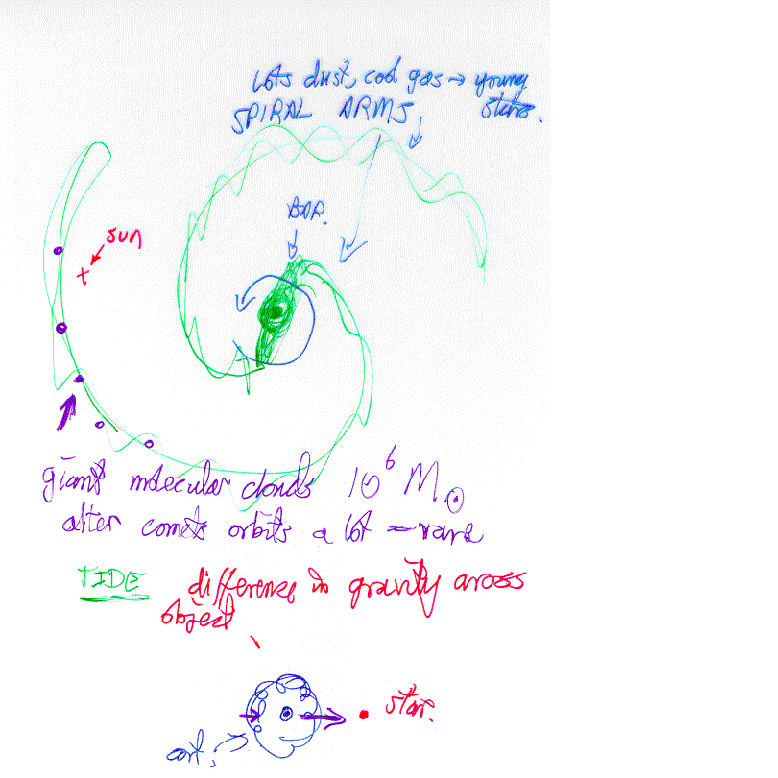 Lots dust, cool gas → young
stars.
SPIRAL ARMS
BAR.
sun
giant molecular clouds 10⁶ M☉
alter comets orbits a lot - rare
TIDE difference in gravity across
object
star.
oort